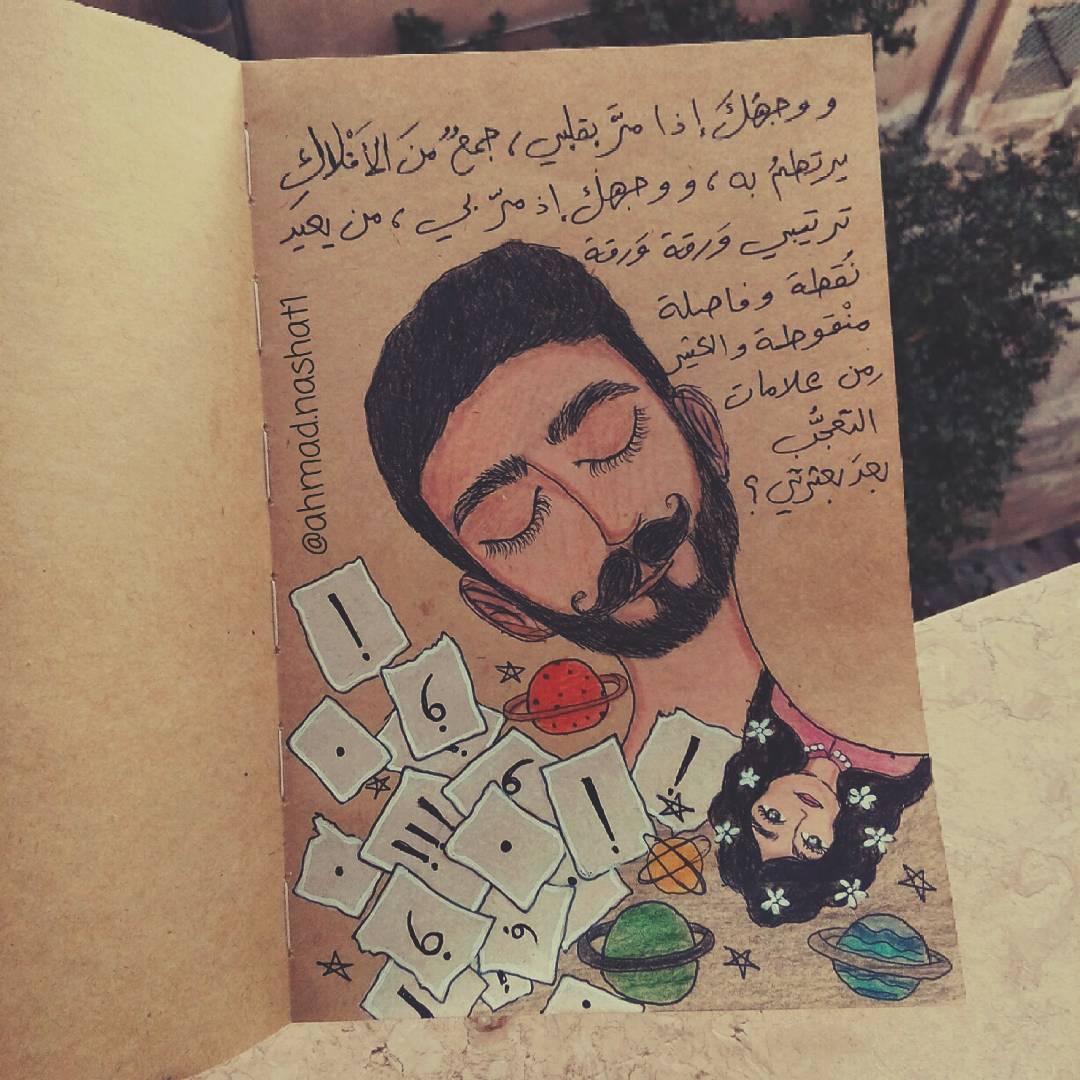 و وجهُكَ إذا مرَّ بقلبي، جمعٌ منَ الأفْلاكِ
يرتطمُ به، و وجهُكَ إذ مرّ بي، من يعيد
ترتيبي وَرقة وَرقة
نُقطة و فاصلة
منْقوطة والكثير
من علامات
التعجُّب
بعدَ بعثرتي ؟
@ahmad.nashat1
!
؟
.
!!!
؟
.
!
!
.
؟
؟
!
.